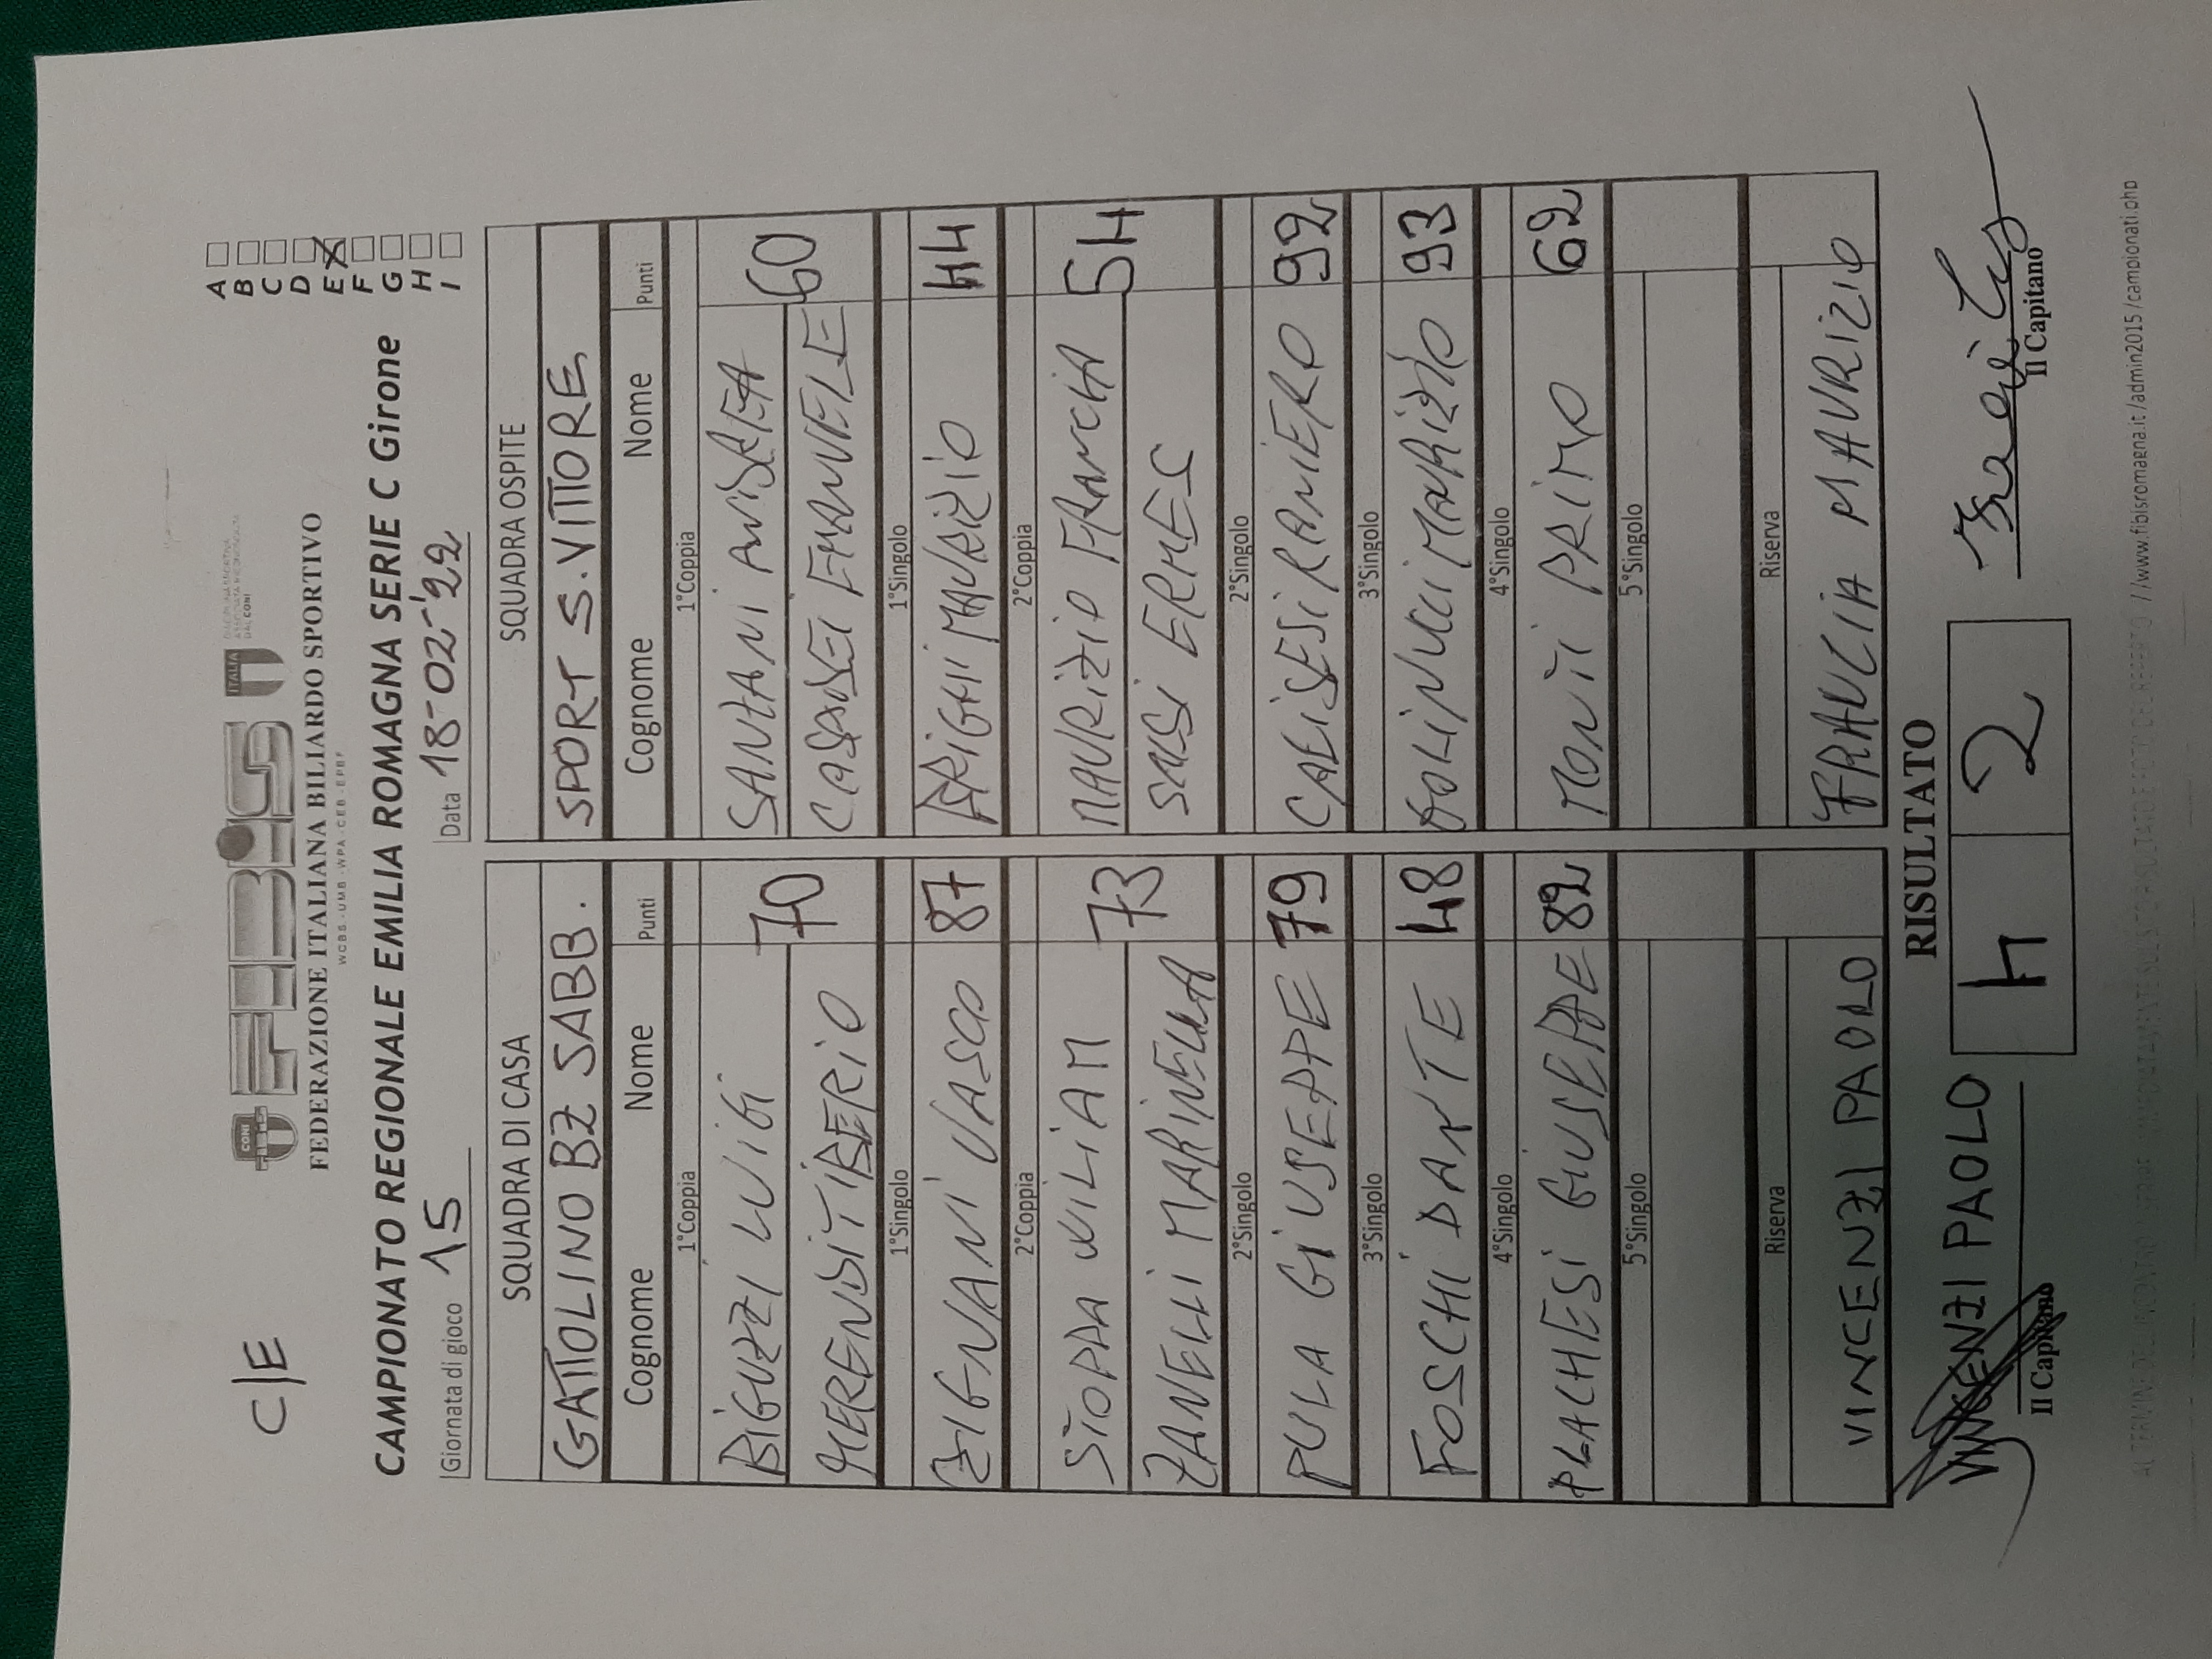 C/E
CONI FEDBIS ITALIA
FEDERAZIONE ITALIANA BILIARDO SPORTIVO
WCBS - UMB - WPA - CEB - EPBF
CAMPIONATO REGIONALE EMILIA ROMAGNA SERIE C Girone
A
B
C
D
E X
F
G
H
I
Giornata di gioco 15 Data 18-02-'22
SQUADRA DI CASA
GATTOLINO BZ SABB.
Cognome Nome Punti
1°Coppia
BIGUZZI LUIGI 70
MERENDI TIBERIO
1°Singolo
ZIGNANI VASCO 87
2°Coppia
WILIAM 73
ZANELLI MARINELLA
2°Singolo
PULA GIUSEPPE 79
3°Singolo
FOSCHI DANTE 48
4°Singolo
PLACHESI GIUSEPPE 82
5°Singolo
Riserva
VINCENZI PAOLO
SQUADRA OSPITE
SPORT S.VITTORE
Cognome Nome Punti
1°Coppia
SANTANI ANDREA 60
CASADEI EMANUELE
1°Singolo
MAURIZIO 44
2°Coppia
MAURIZIO FRANCIA 54
SALSI ERMES
2°Singolo
CALISESI RANIERO 92
3°Singolo
MAURIZIO 93
4°Singolo
MONTI PRIMO 62
5°Singolo
Riserva
FRANCIA MAURIZIO
RISULTATO
4 2
VINCENZI PAOLO
Il Capitano
Il Capitano
//www.fibisromagna.it/admin2015/campionati.php